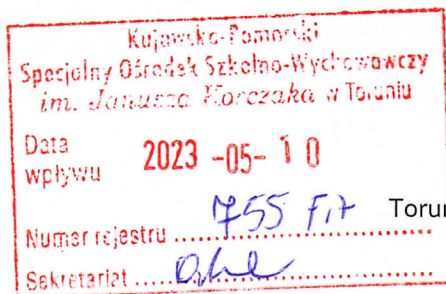 Kujawsko-Pomorski
Specjalny Ośrodek Szkolno-Wychowawczy
im. Janusza Korczaka w Toruniu
Data
wpływu 2023 -05- 10
Numer rejestru 755 Toruń
Sekretariat